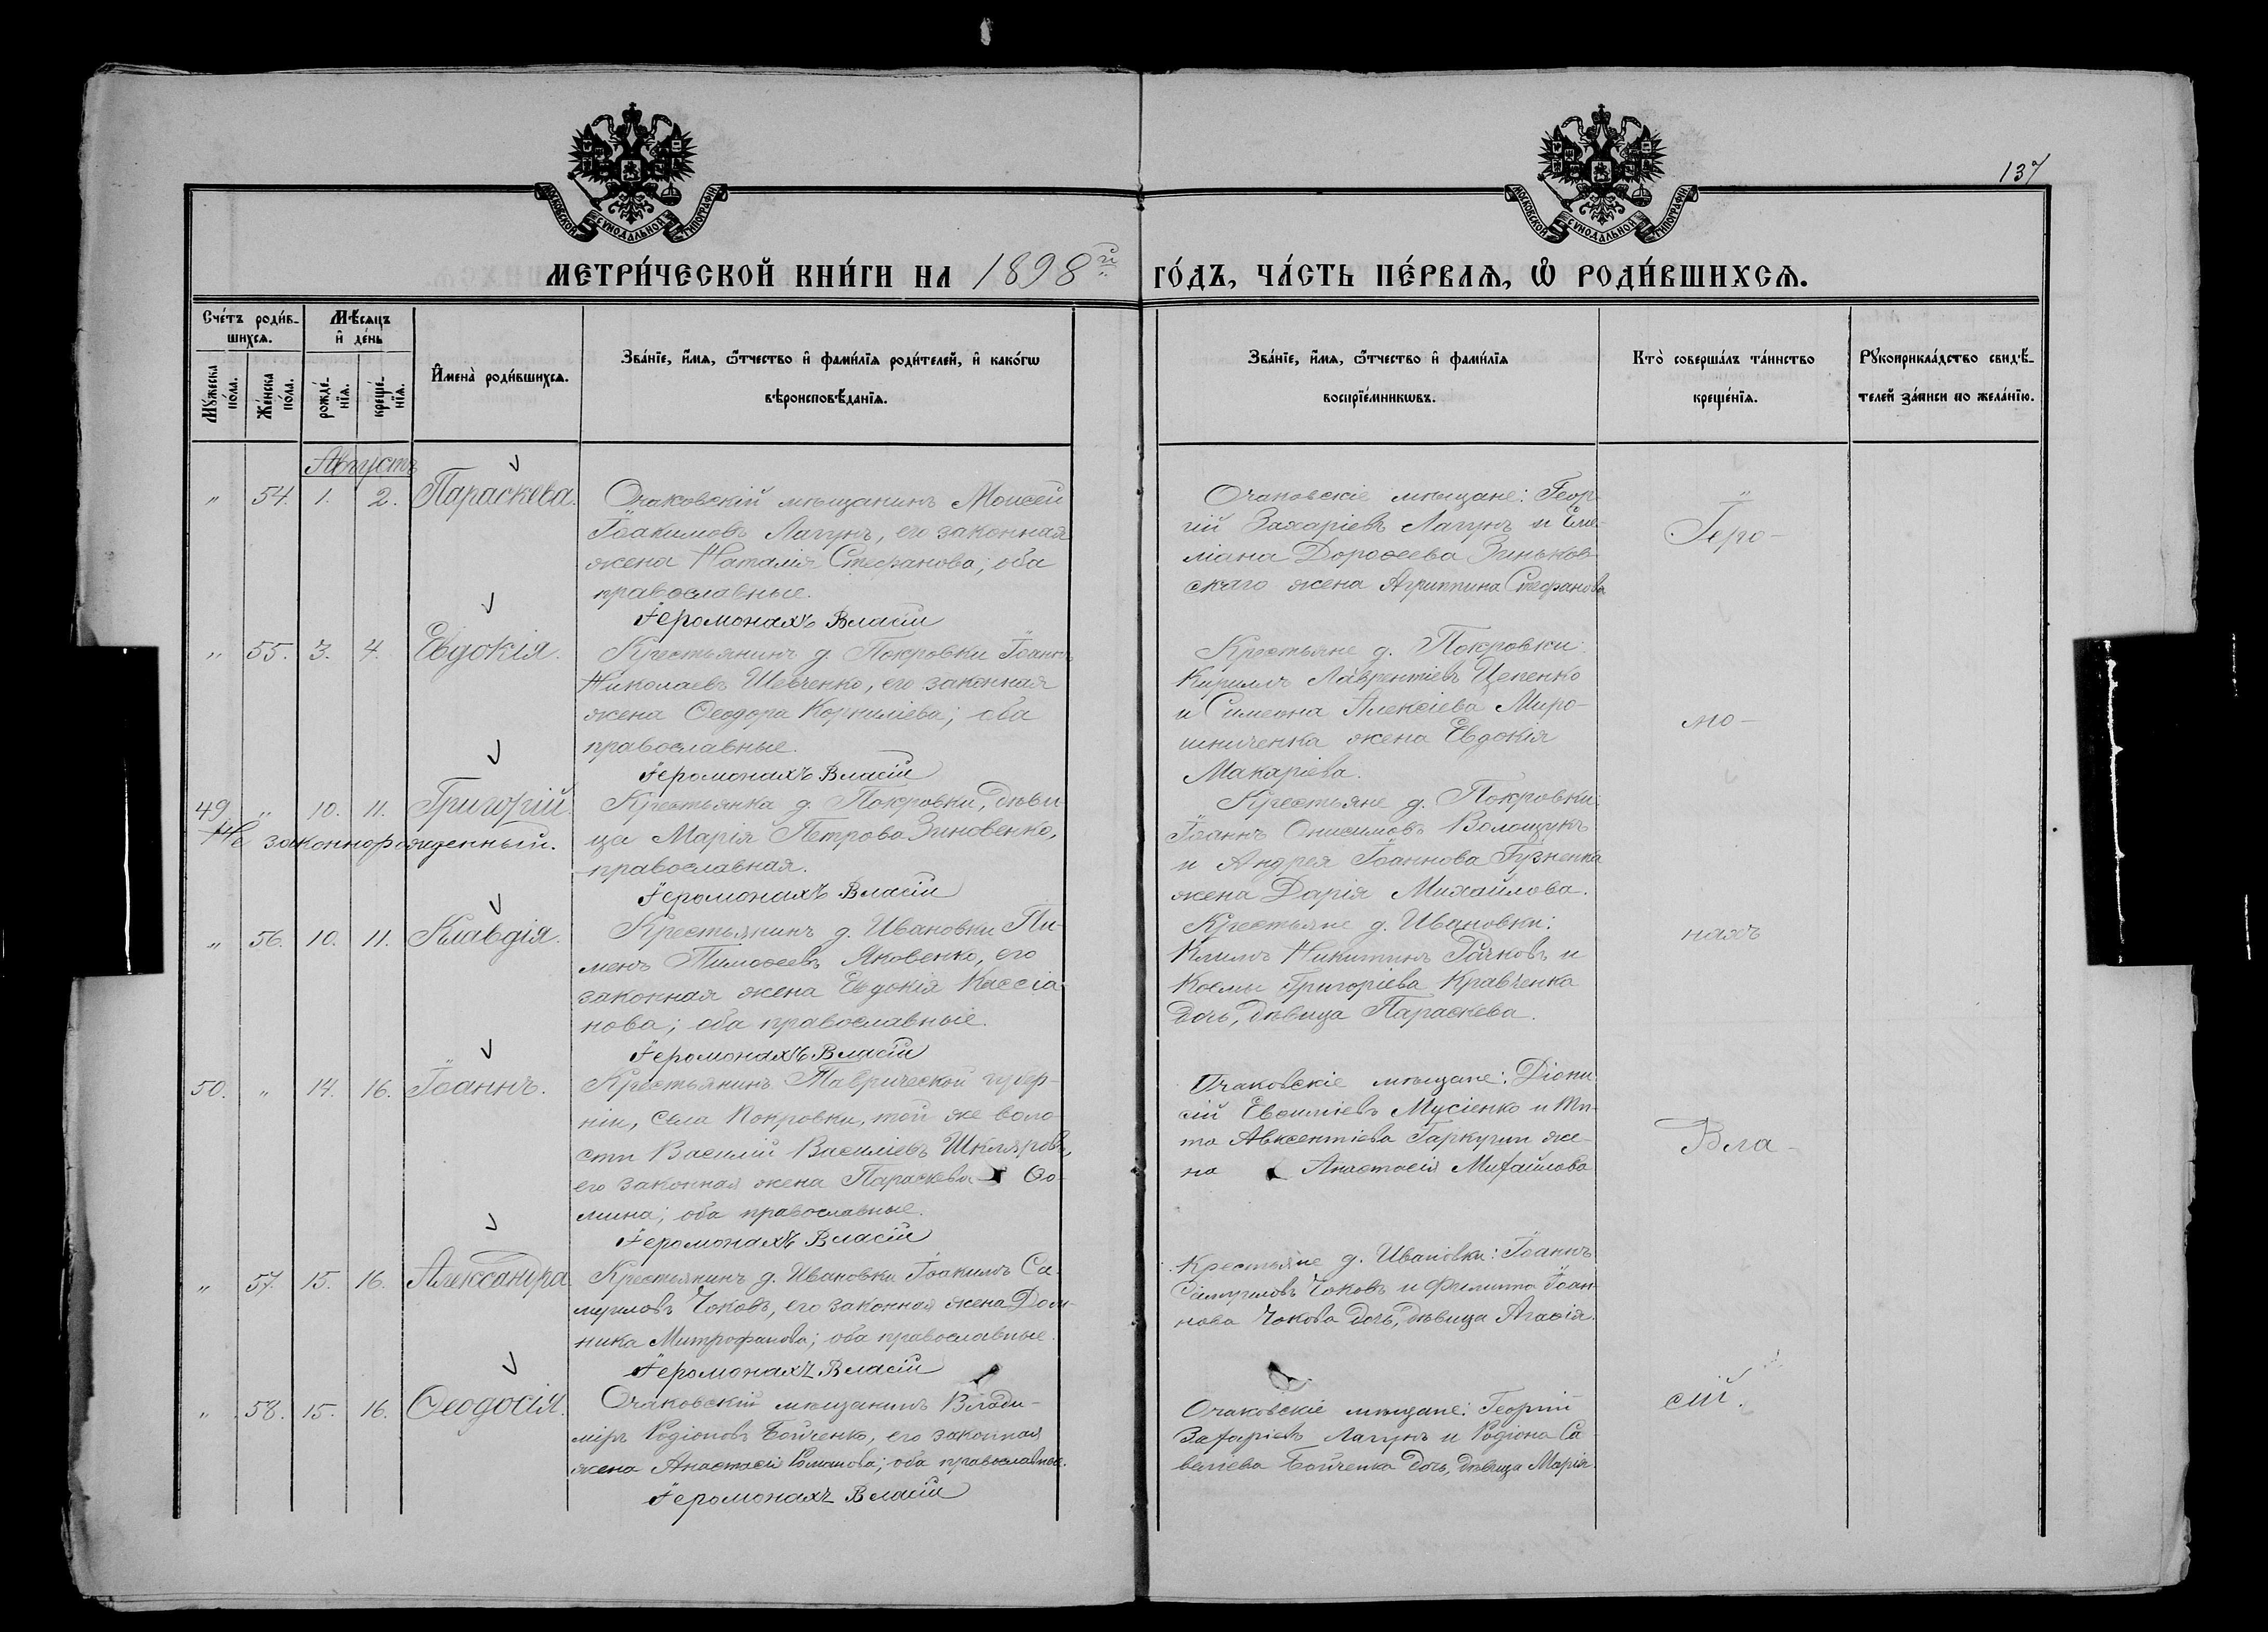 137
МОСКОВСКОЙ СѴНОДАЛЬНОЙ ТИПОГРАФІИ
МОСКОВСКОЙ СѴНОДАЛЬНОЙ ТИПОГРАФІИ
МЕТРИ́ЧЕСКОЙ КНИ́ГИ НА 1898й ГО́ДЪ, ЧА́СТЬ ПЕ́РВАѦ, Ѡ҆ РОДИ́ВШИХСѦ.
Сче́тъ роди́в-
шихсѧ.
Мꙋ́жеска по́ла.
Же́нска по́ла.
Мѣ́сѧцъ
и҆ де́нь
рожде́нїѧ.
креще́нїѧ.
И҆мена̀ роди́вшихсѧ.
Зва́нїе, и҆́мѧ, ѻ҆́тчество и҆ фами́лїѧ роди́телей, и҆ како́гѡ
вѣроисповѣ́данїѧ.
Зва́нїе, и҆́мѧ, ѻ҆́тчество и҆ фами́лїѧ
воспрїе́мникѡвъ.
Кто̀ соверша́лъ та́инство
креще́нїѧ.
Рꙋкоприкла́дство свидѣ́-
телей за́писи по жела́нїю.
Августъ
" 54. 1. 2. Параскева.
Очаковскій мѣщанинъ Моисей
Іоакимовъ Лагунъ, его законная
жена Наталія Стефанова; оба
православные.
Іеромонахъ Власій
Очаковскіе мѣщане: Геор-
гій Захаріевъ Лагунъ и Еме-
ліана Дороѳеева Зиньков-
скаго жена Агриппина Стефанова
Іеро-
" 55. 3. 4. Евдокія.
Крестьянинъ д. Покровки Іоаннъ
Николаевъ Шевченко, его законная
жена Ѳеодора Корниліева; оба
православные.
Іеромонахъ Власій
Крестьяне д. Покровки:
Кириллъ Лаврентіевъ Цепенко
и Симеона Алексіева Миро-
шниченка жена Евдокія
Макаріева.
мо-
49 " 10. 11. Григорій
Незаконнорожденный.
Крестьянка д. Покровки, дѣви-
ца Марія Петрова Зиновенко,
православная.
Іеромонахъ Власій
Крестьяне д. Покровки:
Іоаннъ Онисимовъ Волощукъ
и Андрея Іоаннова Гузненка
жена Дарія Михайлова.
" 56. 10. 11. Клавдія.
Крестьянинъ д. Ивановки Пи-
менъ Тимоѳеевъ Яковенко, его
законная жена Евдокія Кассіа-
нова; оба православные.
Іеромонахъ Власій
Крестьяне д. Ивановки:
Климъ Никитинъ и
Космы Григоріева Кравченка
дочь, дѣвица Параскева.
нахъ
50. " 14. 16. Іоаннъ.
Крестьянинъ Таврической губер-
ніи, села Покровки, той же воло-
сти Василій Василіевъ Шкляровъ,
его законная жена Параскева Ѳо-
мина; оба православные.
Іеромонахъ Власій
Очаковскіе мѣщане: Діони-
сій Мусіенко и Ти-
та Авксентіева Гаркуши же-
на Анастасія Михайлова
Вла-
" 57. 15. 16. Александра
Крестьянинъ д. Ивановки Іоакимъ Са-
муиловъ Чоковъ, его законная жена Дом-
ника Митрофанова; оба православные.
Іеромонахъ Власій
Крестьяне д. Ивановки: Іоаннъ
Самуиловъ Чоковъ и Филиппа Іоан-
нова Чокова дочь, дѣвица Агаѳія.
" 58. 15. 16. Ѳеодосія.
Очаковскій мѣщанинъ Влади-
міръ Родіоновъ Бойченко, его законная
жена Анастасія Романова; оба православные.
Іеромонахъ Власій
Очаковскіе мѣщане: Георгій
Захаріевъ Лагунъ и Родіона Са-
веліева Бойченка дочь, дѣвица Марія.
сій.